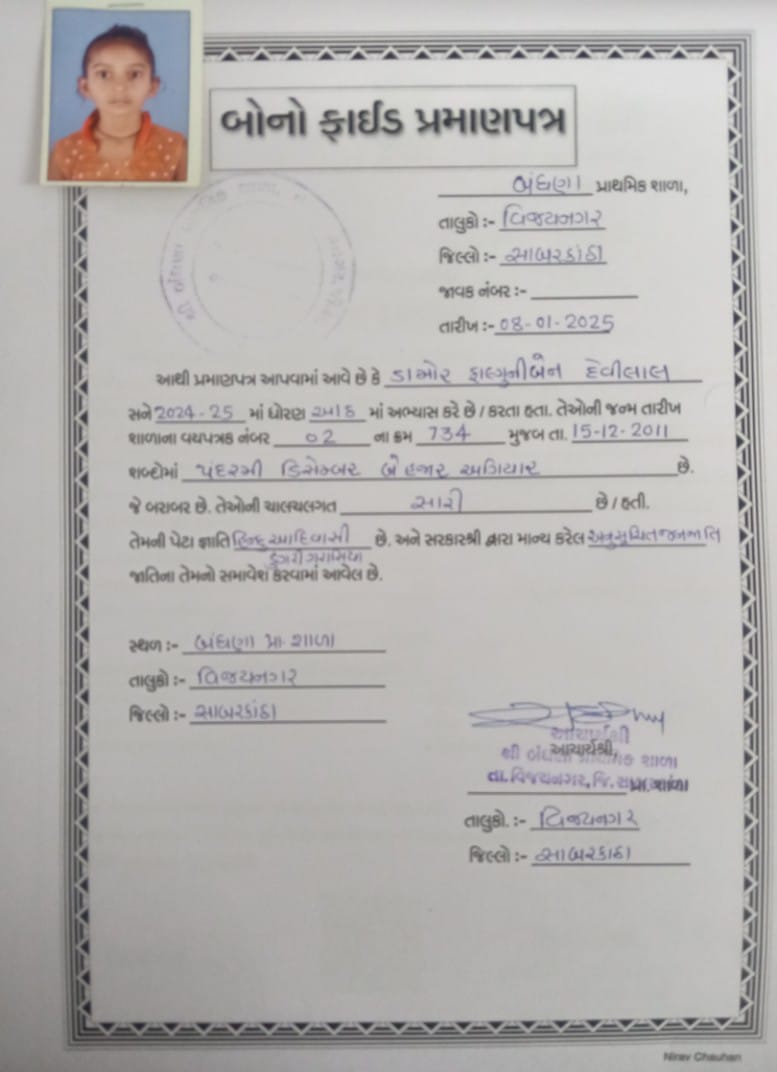 બોનો ફાઈડ પ્રમાણપત્ર
બંધણા પ્રાથમિક શાળા,
તાલુકો :- વિજયનગર
જિલ્લો :- સાબરકાંઠા
જાવક નંબર :-
તારીખ :- 08-01-2025
આથી પ્રમાણપત્ર આપવામાં આવે છે કે ડામોર ફાલ્ગુનીબેન દેવીલાલ
સને 2024-25 માં ધોરણ આઠ માં અભ્યાસ કરે છે / કરતા હતા. તેઓની જન્મ તારીખ
શાળાના વયપત્રક નંબર 02 ના ક્રમ 734 મુજબ તા. 15-12-2011
શબ્દોમાં પંદરમી ડિસેમ્બર બે હજાર અગિયાર છે.
જે બરાબર છે. તેઓની ચાલચલગત સારી છે / હતી.
તેમની પેટા જ્ઞાતિ હિન્દુ આદિવાસી છે. અને સરકારશ્રી દ્વારા માન્ય કરેલ અનુસૂચિત જનજાતિ
ડુંગરી ગરાસિયા
જાતિના તેમનો સમાવેશ કરવામાં આવેલ છે.
સ્થળ :- બંધણા પ્રા. શાળા
તાલુકો :- વિજયનગર
જિલ્લો :- સાબરકાંઠા
આચાર્યશ્રી
આચાર્યશ્રી,
શ્રી બંધણા પ્રાથમિક શાળા
તા. વિજયનગર, જિ. પ્રા. શાળા
તાલુકો. :- વિજયનગર
જિલ્લો :- સાબરકાંઠા
Nirav Chauhan